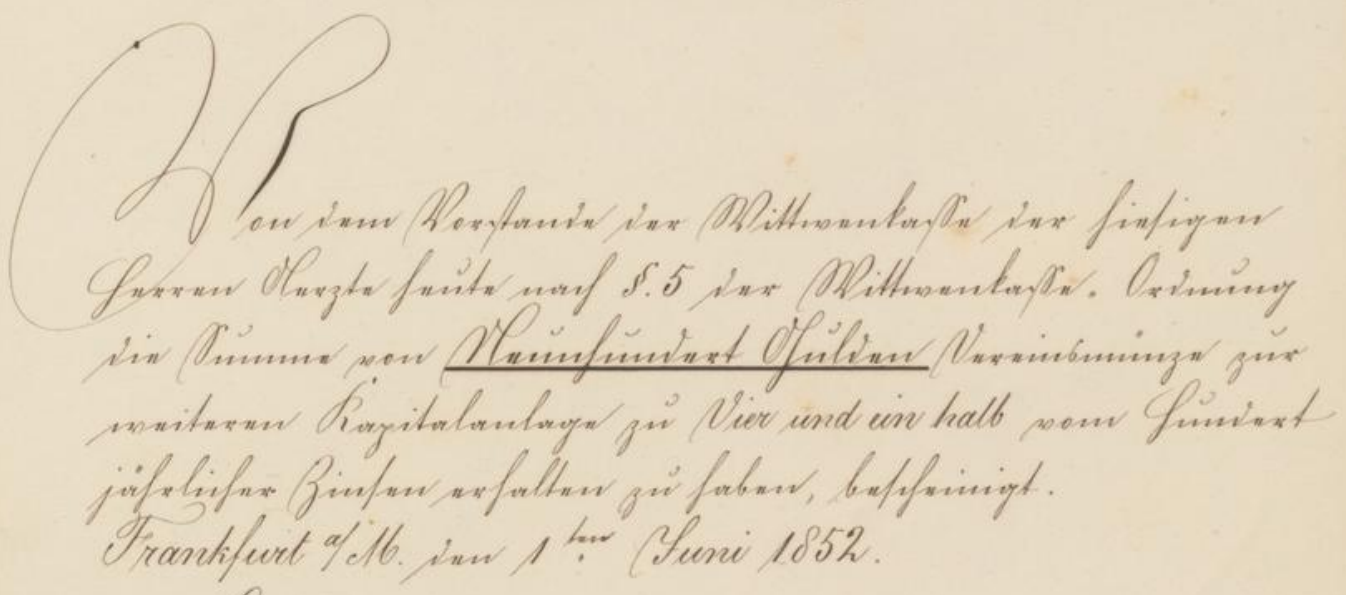 Von dem Vorstande der Wittwenkasse der hiesigen
Herren Aerzte heute nach §. 5 der Wittwenkasse-Ordnung
die Summe von Neunhundert Gulden Vereinsmünze zur
weiteren Kapitalanlage zu Vier und ein halb vom Hundert
jährlicher Zinsen erhalten zu haben, bescheinigt.
Frankfurt a/M. den 1ten Juni 1852.